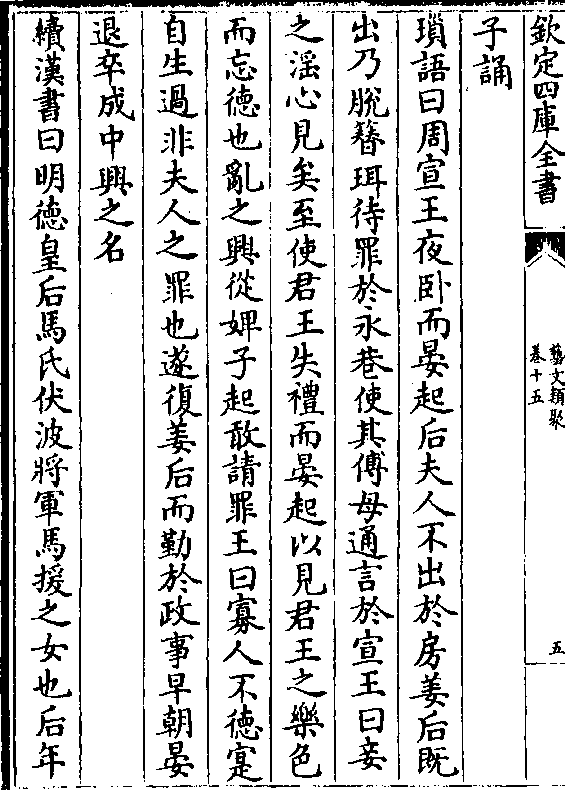 欽定四庫全書
藝文類聚
卷十五
五
子誦
瑣語曰周宣王夜卧而晏起后夫人不出於房姜后既
出乃脫簮珥待罪於永巷使其傅母通言於宣王曰妾
之淫心見矣至使君王失禮而晏起以見君王之樂色
而忘德也亂之興從婢子起敢請罪王曰寡人不德寔
自生過非夫人之罪也遂復姜后而勤於政事早朝晏
退卒成中興之名
續漢書曰明德皇后馬氏伏波將軍馬援之女也后年